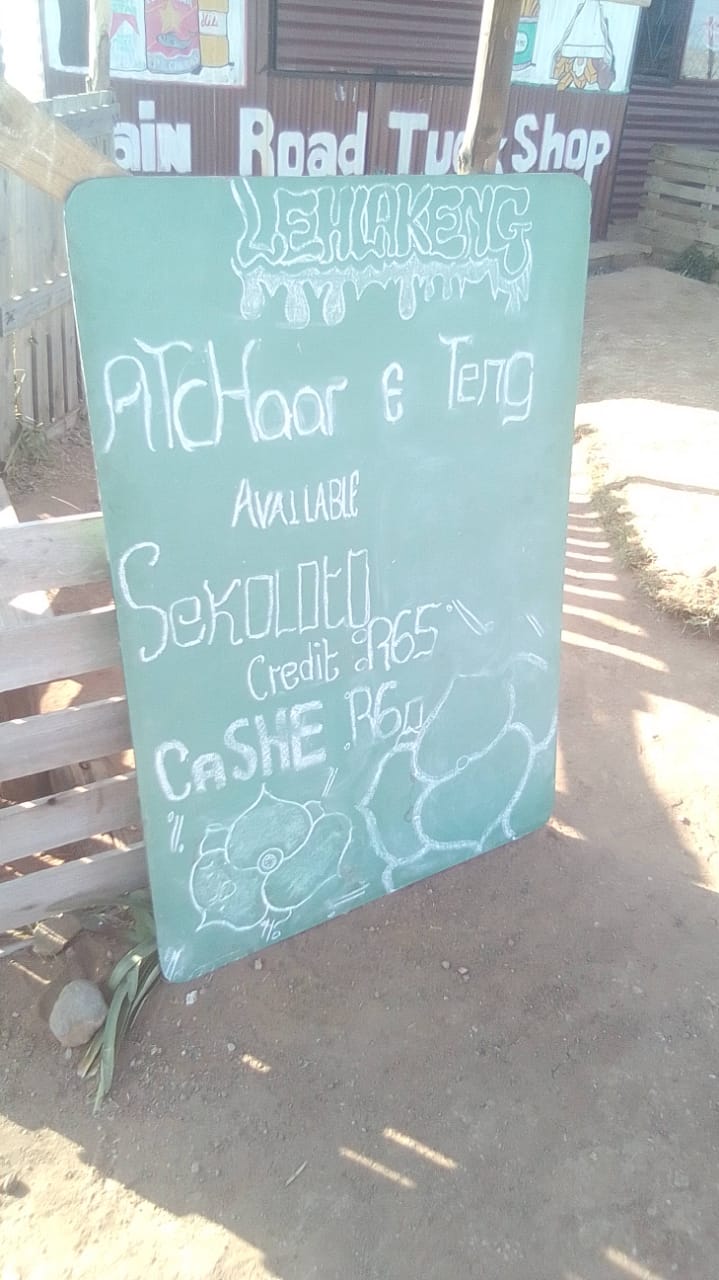 ain Road Tuck Shop
LEHLAKENG
ATcHaar & Teng
AVAILABLE
SeKOLOtO
Credit :R65
CaSHE :R60